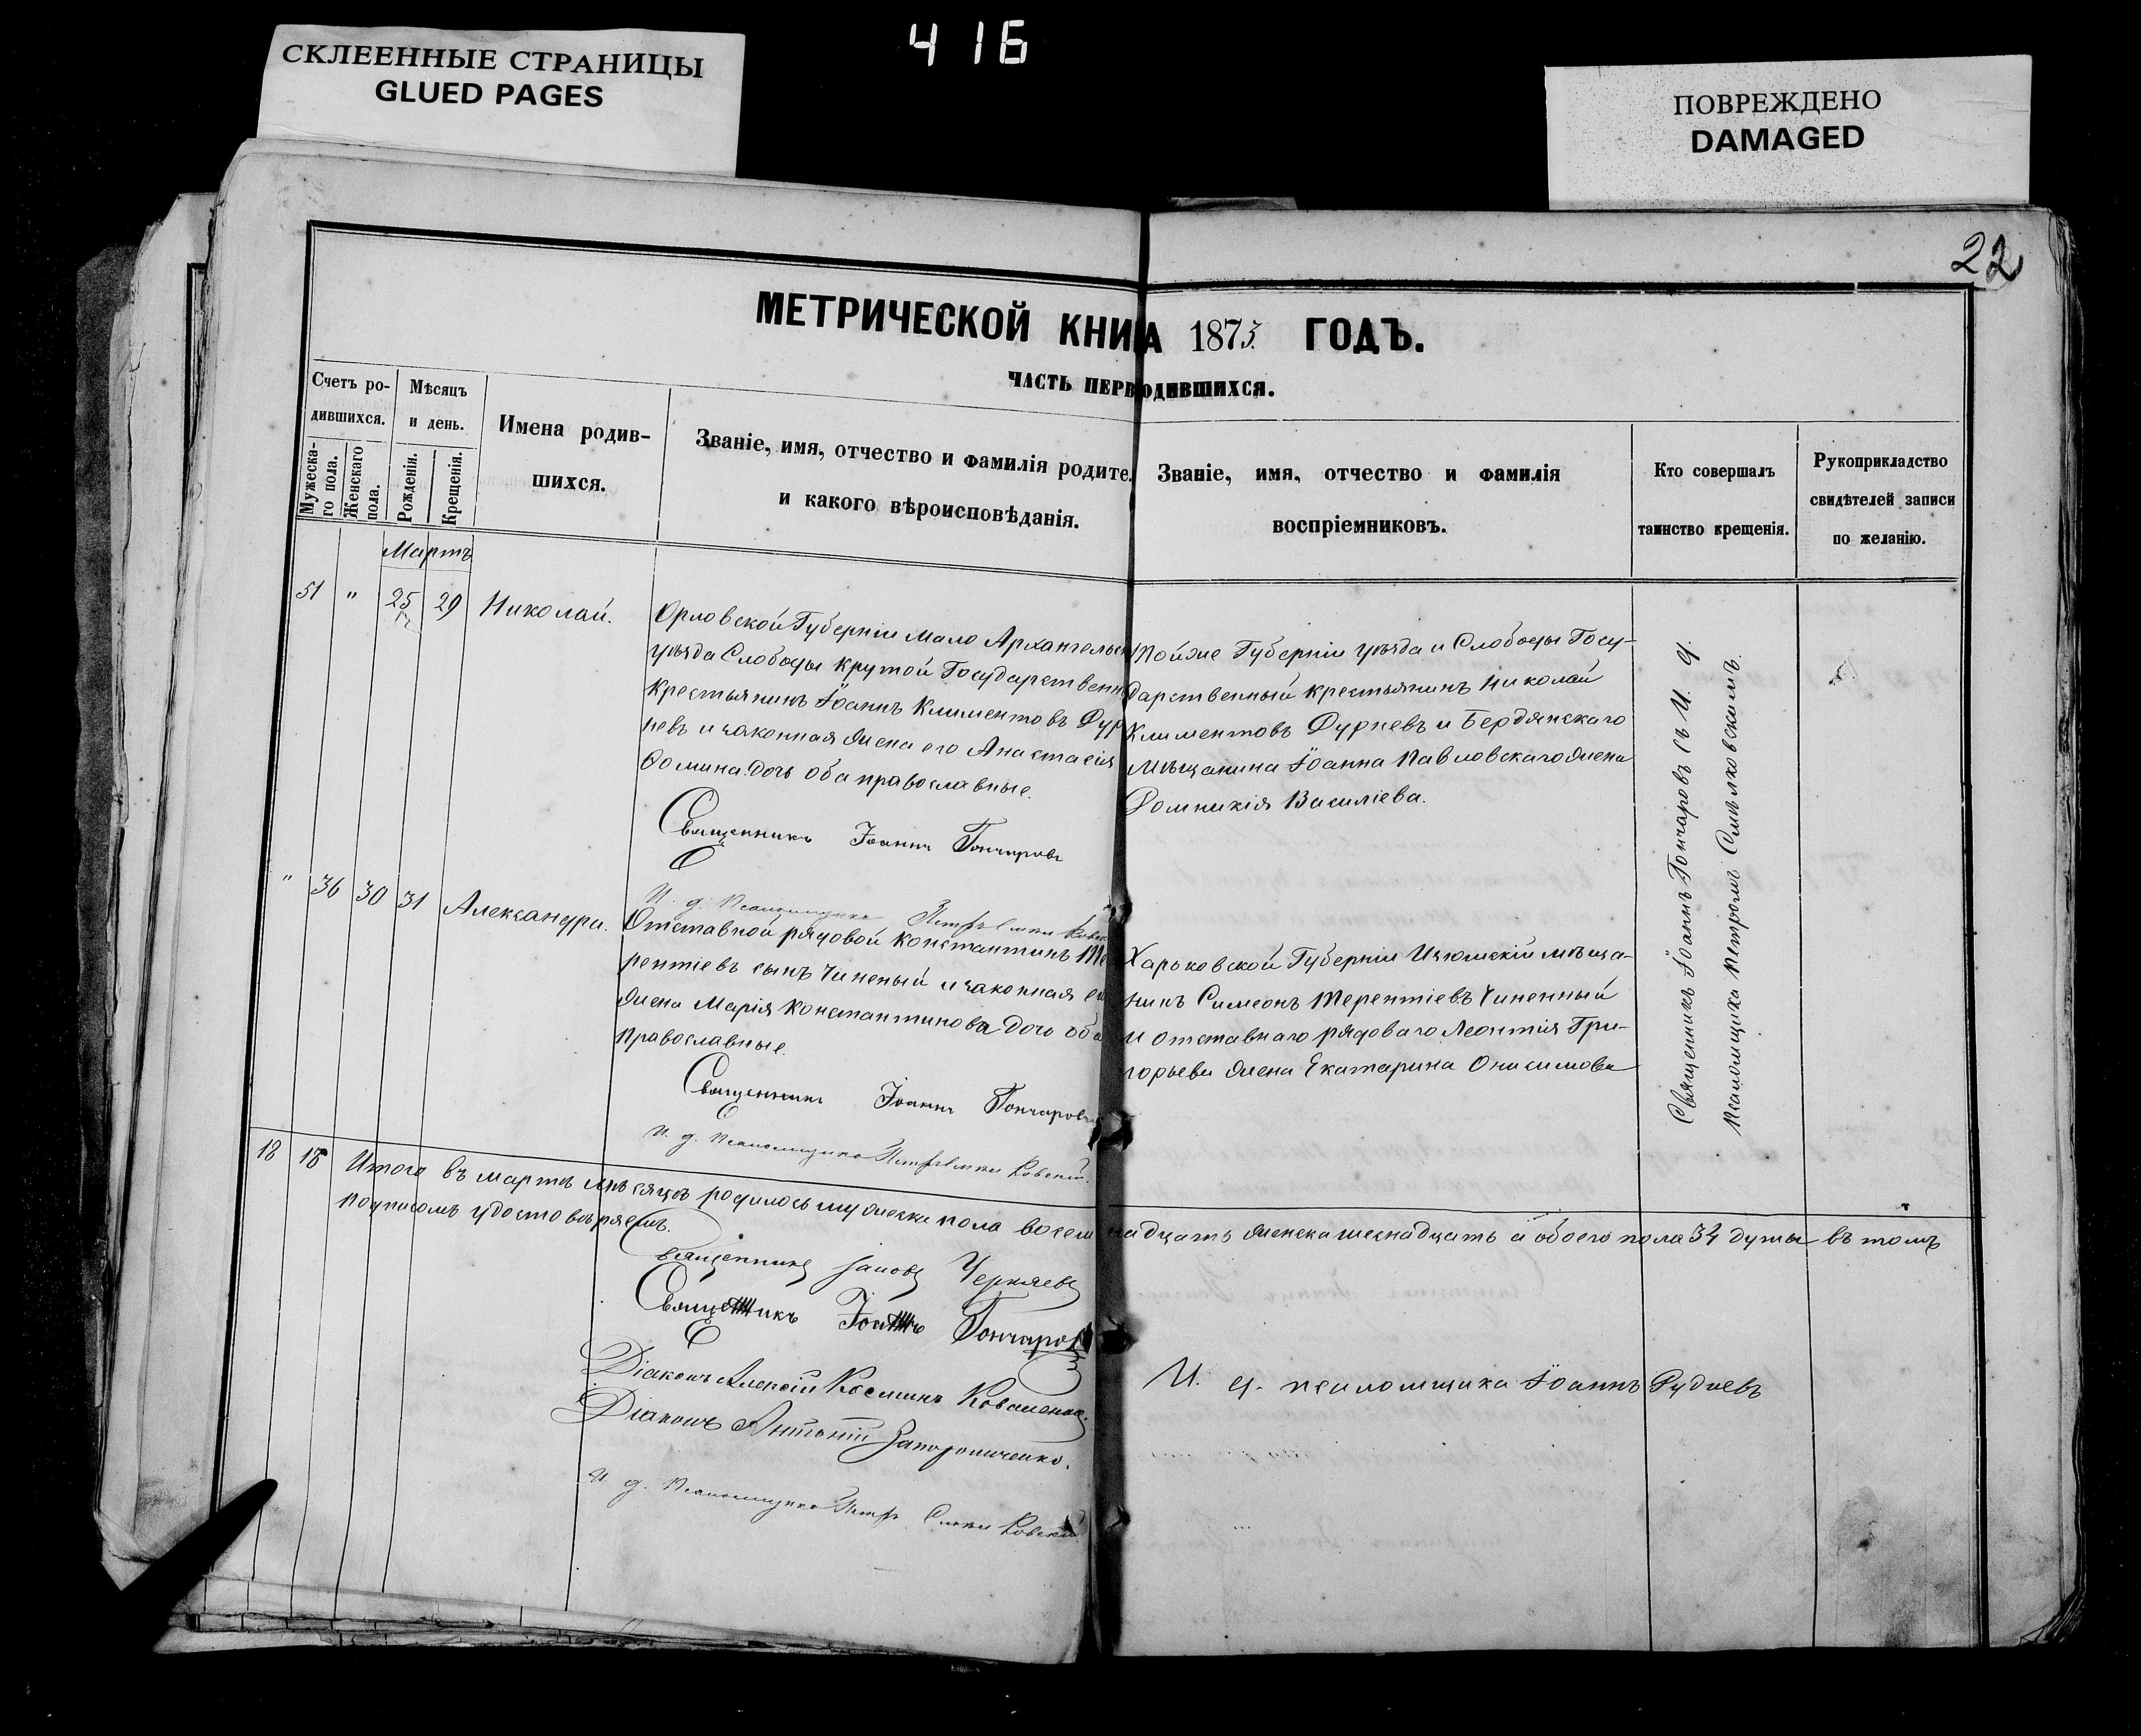 416
СКЛЕЕННЫЕ СТРАНИЦЫ
GLUED PAGES
ПОВРЕЖДЕНО
DAMAGED
22
МЕТРИЧЕСКОЙ КНИ А 1873 ГОДЪ.
ЧАСТЬ ПЕРВ ОДИВШИХСЯ.
Счетъ ро-
дившихся.
Мужеска-
го пола.
Женскаго
пола.
Мѣсяцъ
и день.
Рожденія.
Крещенія.
Имена родив-
шихся.
Званіе, имя, отчество и фамилія родите
и какого вѣроисповѣданія.
Званіе, имя, отчество и фамилія
воспріемниковъ.
Кто совершалъ
таинство крещенія.
Рукоприкладство
свидѣтелей записи
по желанію.
Мартъ
51 " 25 29 Николай.
Орловской Губерніи Мало Архангельск
уѣзда Слободы Крутой Государственн
Крестьянинъ Іоаннъ Климентовъ Дур
невъ и законная жена его Анастасія
Ѳомина дочь оба православные.
Священникъ Іоаннъ Гончаровъ
И. д. Псаломщика Петръ
Тойже Губерніи уѣзда и Слободы Госу-
дарственный крестьянинъ Николай
Климентовъ Дурневъ и Бердянскаго
Мѣщанина Іоанна Павловскаго жена
Домникія Василіева.
" 36 30 31 Александра.
Отставной рядовой Константинъ Те
рентіевъ сынъ Чиненый и законная ег
жена Марія Константинова дочь оба
Православные.
Священникъ Іоаннъ Гончаровъ
И. д. Псаломщика Петръ Смѣлковскій.
Харьковской Губерніи Изюмскій мѣща-
нинъ Симеонъ Терентіевъ Чиненный
и отставнаго рядоваго Леонтія Гри-
горьева жена Екатарина Онисимова
Священникъ Іоаннъ Гончаровъ съ И. д.
Псаломщика Петромъ Смѣлковскимъ.
18 16 Итого въ мартѣ мѣсяцѣ родилось мужеска пола восем надцать женска шеснадцать а обоего пола 34 душы въ томъ
подписомъ удостовѣряемъ.
Священникъ Іаковъ Черняевъ
Священникъ Іоаннъ Гончаров
Діаконъ Алексій Косминъ Коваленко.
Діаконъ Антоній Запорожченко.
И. д. Псаломщика Петръ Смѣлковскій
И. д. псаломщика Іоаннъ Рудневъ